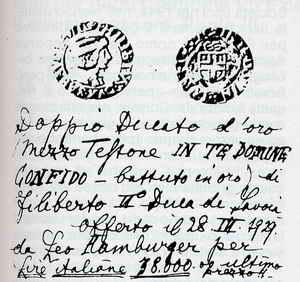 Doppio Ducato d'oro
(Mezzo Testone IN TE DOMINE
CONFIDO - battuto in oro) di
Filiberto II° Duca di Savoia
offerto il 28 III 1929
da Leo Hamburger per
lire italiane 38.000 ultimo
prezzo!!